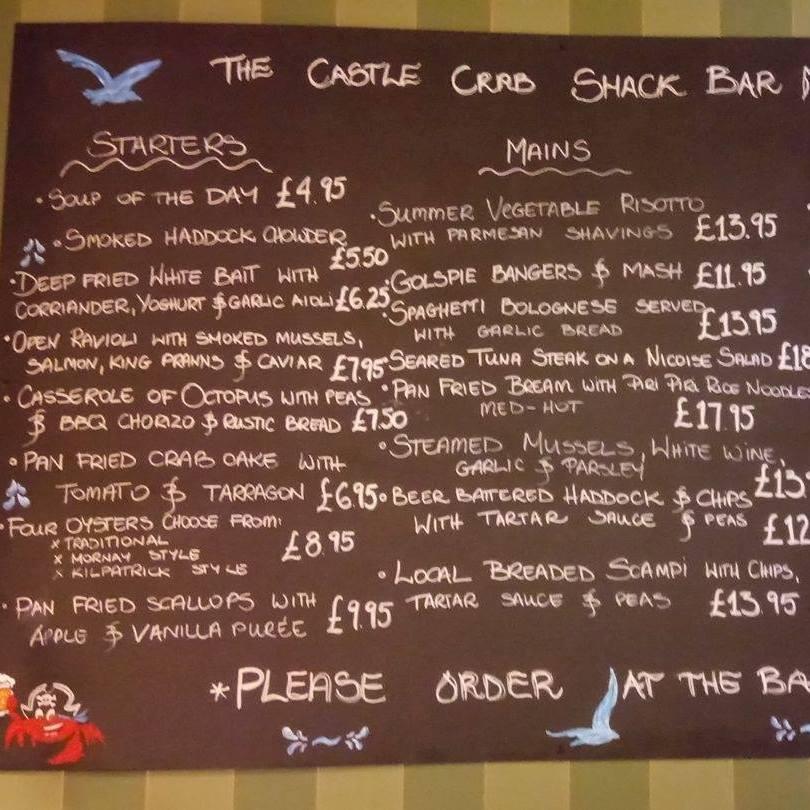 THE CASTLE CRAB SHACK BAR
STARTERS
• SOUP OF THE DAY £4.95
• SMOKED HADDOCK CHOWDER
£5.50
• DEEP FRIED WHITE BAIT WITH
CORRIANDER, YOGHURT & GARLIC AIOLI £6.25
• OPEN RAVIOLI WITH SMOKED MUSSELS,
SALMON, KING PRAWNS & CAVIAR £7.95
• CASSEROLE OF OCTOPUS WITH PEAS
& BBQ CHORIZO & RUSTIC BREAD £7.50
• PAN FRIED CRAB CAKE WITH
TOMATO & TARRAGON £6.95
• FOUR OYSTERS CHOOSE FROM:
x TRADITIONAL
x MORNAY STYLE
x KILPATRICK STYLE
£8.95
• PAN FRIED SCALLOPS WITH
APPLE & VANILLA PURÉE £9.95
MAINS
• SUMMER VEGETABLE RISOTTO
WITH PARMESAN SHAVINGS £13.95
• GOLSPIE BANGERS & MASH £11.95
• SPAGHETTI BOLOGNESE SERVED
WITH GARLIC BREAD £13.95
SEARED TUNA STEAK ON A NICOISE SALAD £18
• PAN FRIED BREAM WITH PIRI PIRI RICE NOODLE
MED-HOT £17.95
• STEAMED MUSSELS, WHITE WINE,
GARLIC & PARSLEY £13
• BEER BATTERED HADDOCK & CHIPS
WITH TARTAR SAUCE & PEAS £12
• LOCAL BREADED SCAMPI WITH CHIPS,
TARTAR SAUCE & PEAS £13.95
*PLEASE ORDER AT THE BA